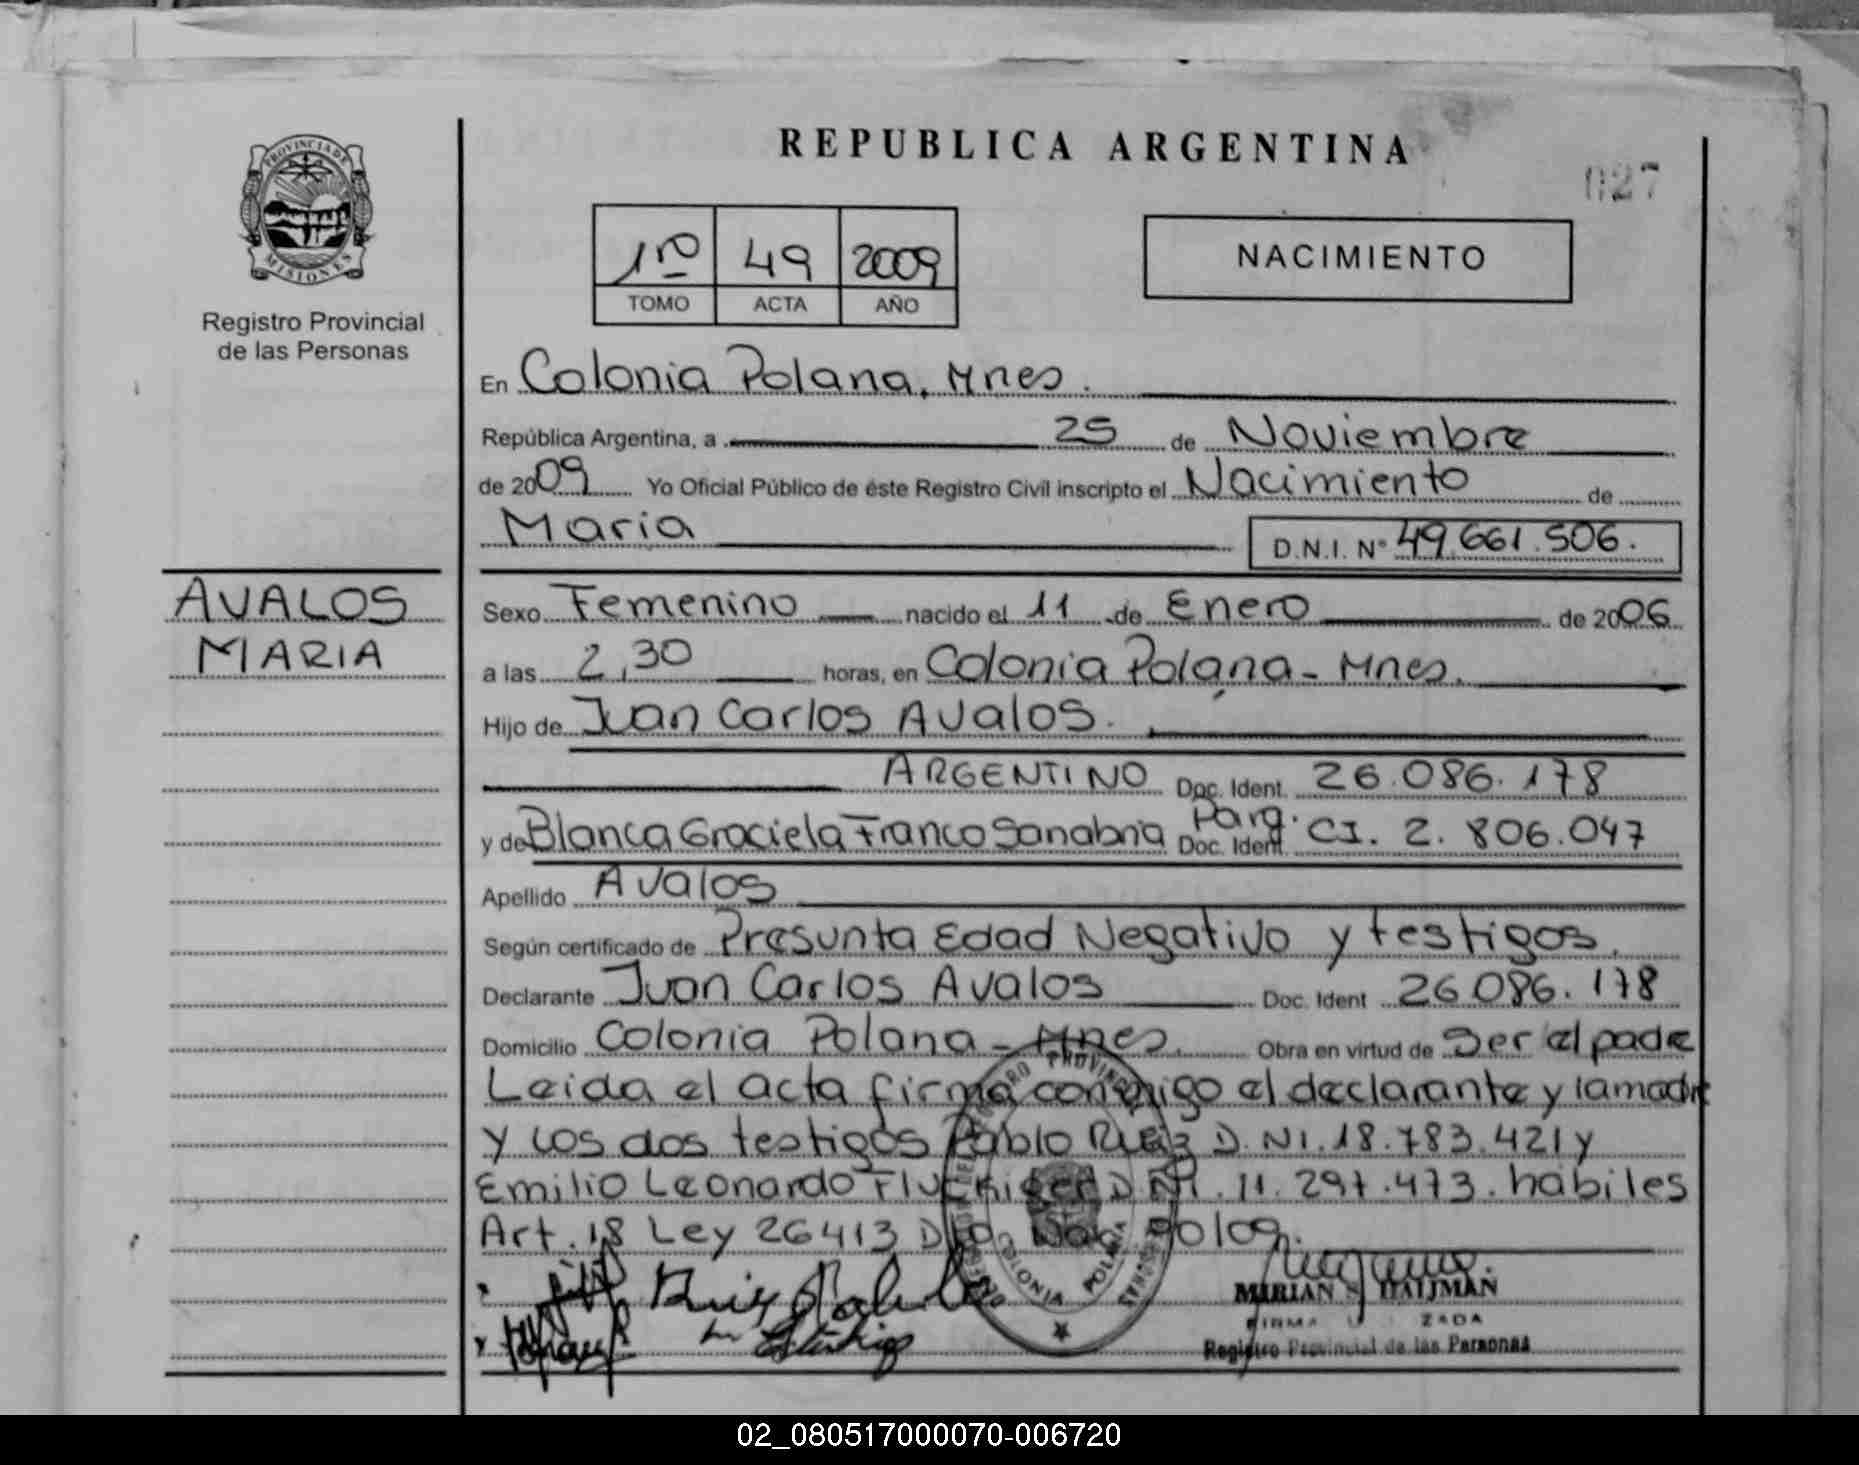 REPUBLICA ARGENTINA
027
PROVINCIA DE
MISIONES
Registro Provincial
de las Personas
1ro 49 2009
TOMO ACTA AÑO
NACIMIENTO
En Colonia Polana, Mnes.
República Argentina, a 25 de Noviembre
de 2009 Yo Oficial Público de éste Registro Civil inscripto el Nacimiento de
Maria D.N.I. Nº 49.661.506.
AVALOS
MARIA
Sexo Femenino nacido el 11 de Enero de 2006
a las 2,30 horas, en Colonia Polana - Mnes.
Hijo de Juan Carlos Avalos.
ARGENTINO Doc. Ident. 26.086.178
y de Blanca Graciela Franco Sanabria Parg. Doc. Ident. CI. 2.806.047
Apellido Avalos
Según certificado de Presunta Edad Negativo y testigos.
Declarante Juan Carlos Avalos Doc. Ident 26.086.178
Domicilio Colonia Polana - Mnes. Obra en virtud de Ser el padre
Leida el acta firma conmigo el declarante y la madre
y los dos testigos Pablo Ruiz D.NI.18.783.421 y
Emilio Leonardo D.NI.11.297.473.habiles
Art.18 Ley 26413 Dto. Nac. 90/09.
Ruiz Pablo
COLONIA POLANA
MIRIAN S HATJMAN
Registro Provincial de las Personas
02_080517000070-006720